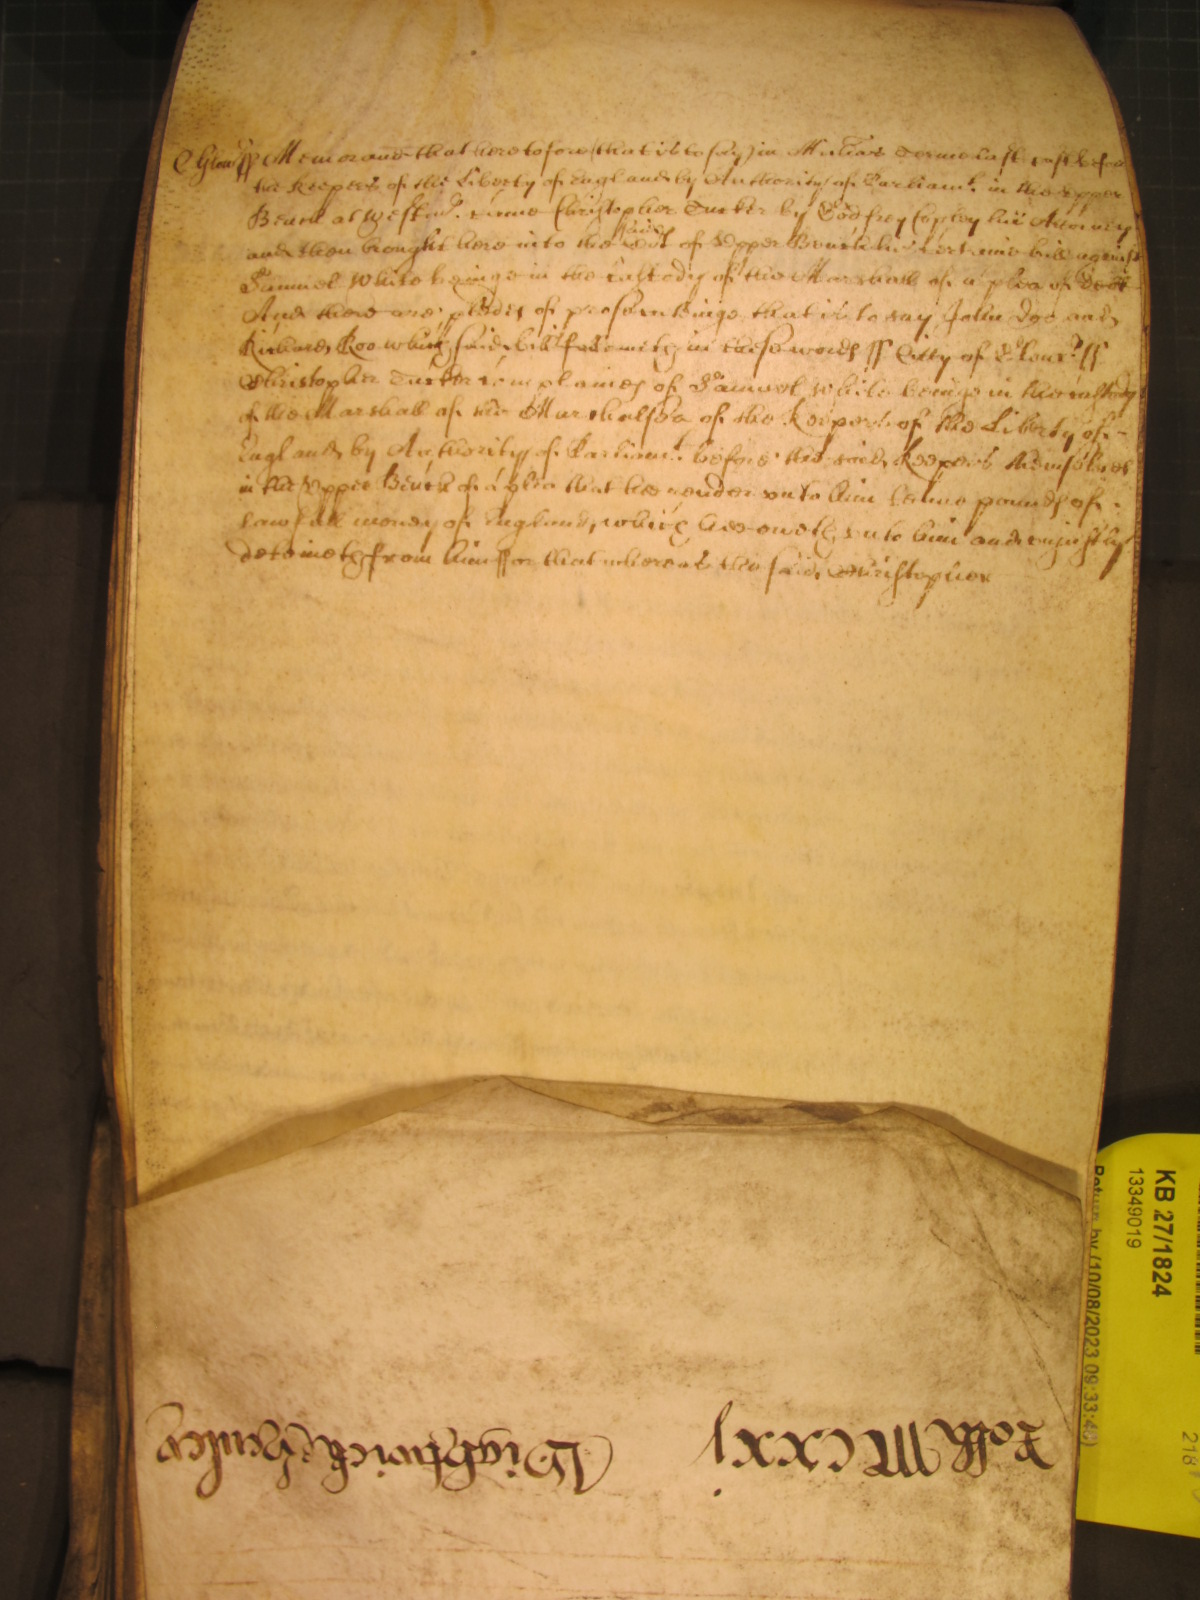 C Glouc ss Memorand that heretofore (that is to say) in Michās Terme last past before
the Keepers of the Liberty of England by Authority of Parliamt. in the Upper
Bench at Westmr. came Christopher Turker by Godfrey Copley his Attorney
and then brought here into the said Court of Upper Bench his certaine bill against
Samuel White beinge in the custody of the Marshall of a plea of Debt
And there are pledges of prosecutinge that is to say John Doe and
Richard Roo which said bill followeth in these words ss Citty of Glouc ss
Christopher Turker complaines of Samuel White beinge in the custody
of the Marshall of the Marshalsea of the Keepers of the Liberty of
England by Authority of Parliamt. before the said Keepers themselves
in the Upper Bench of a plea that hee render unto him pounds of
lawfull money of England, which hee oweth unto him and unjustly
deteineth from him ss For that whereas the said Christopher
Rolls MCxxj Wightwicke & Henley
KB 27/1824
13349019
Return by (10/08/2023 09:33:48)
218